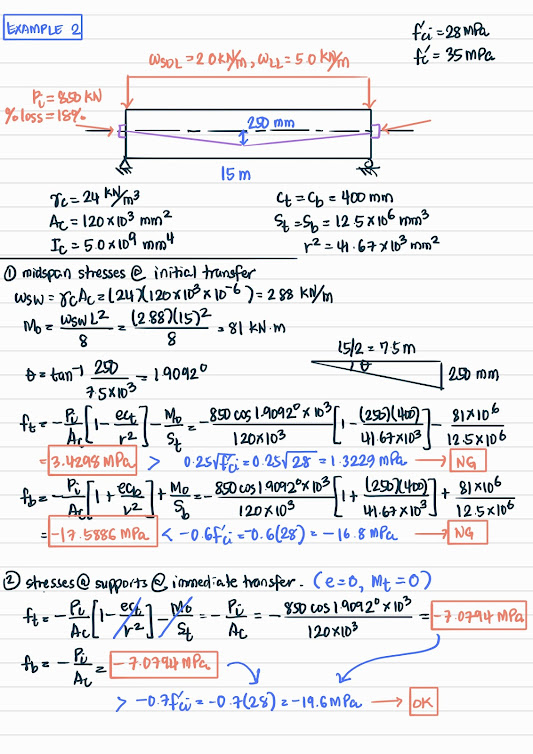 EXAMPLE 2
f'ci = 28 MPa
f'c = 35 MPa
ωSDL = 2.0 kN/m, ωLL = 5.0 kN/m
Pi = 850 KN
% loss = 18%
250 mm
15 m
γc = 24 kN/m³
Ct = Cb = 400 mm
Ac = 120×10³ mm²
St = Sb = 12.5×10⁶ mm³
Ic = 5.0×10⁹ mm⁴
r² = 41.67×10³ mm²
① midspan stresses @ initial transfer
ωsw = γcAc = (24)(120×10³×10⁻⁶) = 2.88 kN/m
Mo = ωswL²/8 = (2.88)(15)²/8 = 81 kN·m
15/2 = 7.5 m
θ
250 mm
θ = tan⁻¹ 250/7.5×10³ = 1.9092°
ft = -Pi/Ac [1 - ect/r²] - Mo/St = -850 cos 1.9092° × 10³/120×10³ [1 - (250)(400)/41.67×10³] - 81×10⁶/12.5×10⁶
= 3.4298 MPa > 0.25√f'ci = 0.25√28 = 1.3229 MPa → NG
fb = -Pi/Ac [1 + ecb/r²] + Mo/Sb = -850 cos 1.9092° × 10³/120×10³ [1 + (250)(400)/41.67×10³] + 81×10⁶/12.5×10⁶
= -17.5886 MPa < -0.6f'ci = -0.6(28) = -16.8 MPa → NG
② stresses @ supports @ immediate transfer. (e=0, Mt=0)
ft = -Pi/Ac [1 - ect/r²] - Mo/St = -Pi/Ac = -850 cos 1.9092° × 10³/120×10³ = -7.0794 MPa
fb = -Pi/Ac = -7.0794 MPa
> -0.7f'ci = -0.7(28) = -19.6 MPa → OK